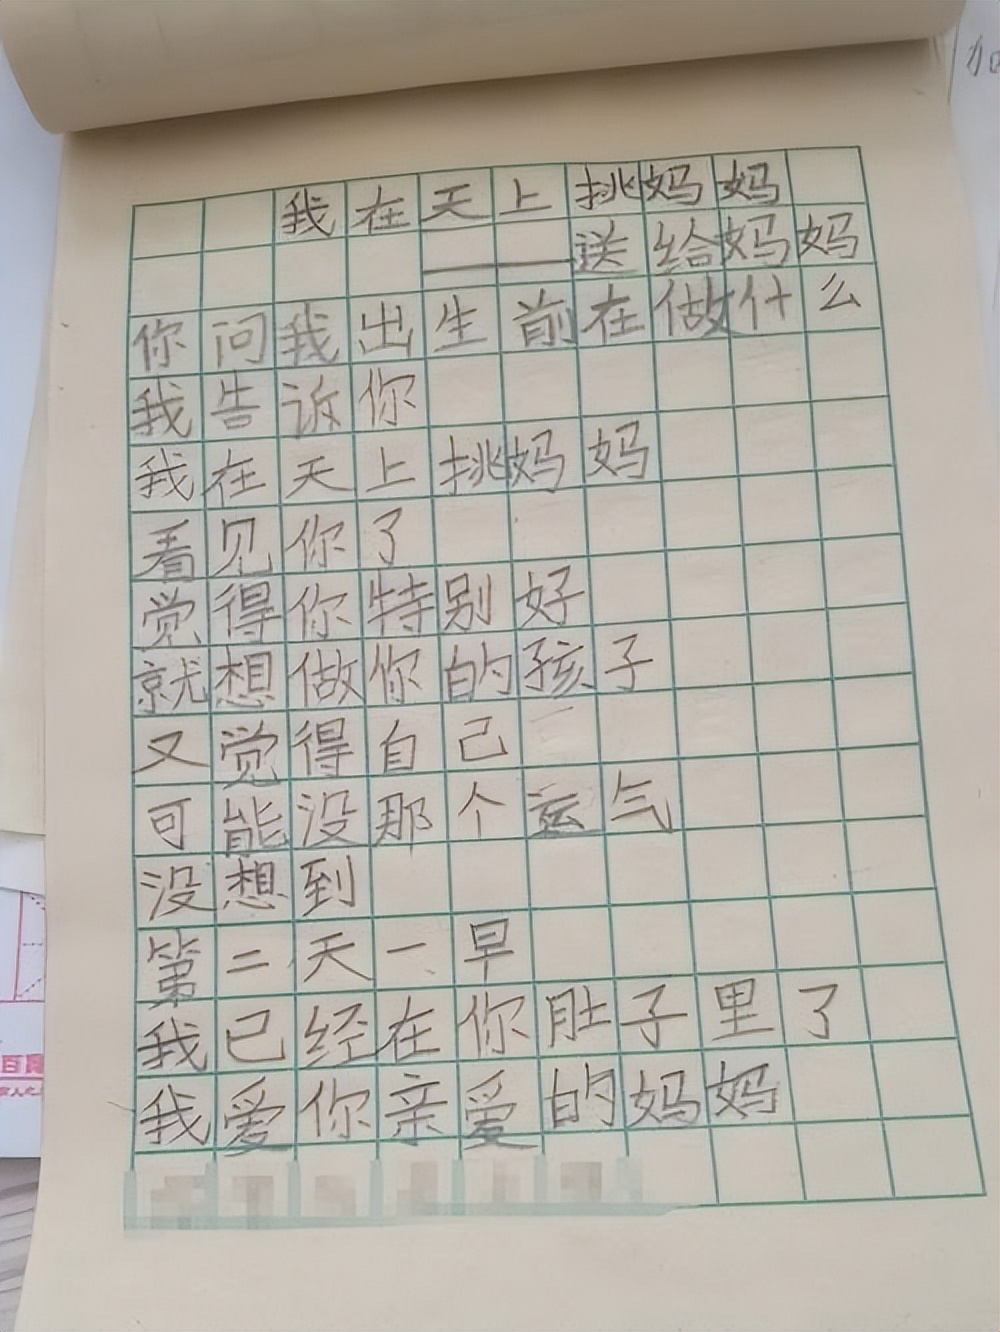 我在天上挑妈妈
——送给妈妈
你问我出生前在做什么
我告诉你
我在天上挑妈妈
看见你了
觉得你特别好
就想做你的孩子
又觉得自己
可能没那个运气
没想到
第二天一早
我已经在你肚子里了
我爱你亲爱的妈妈